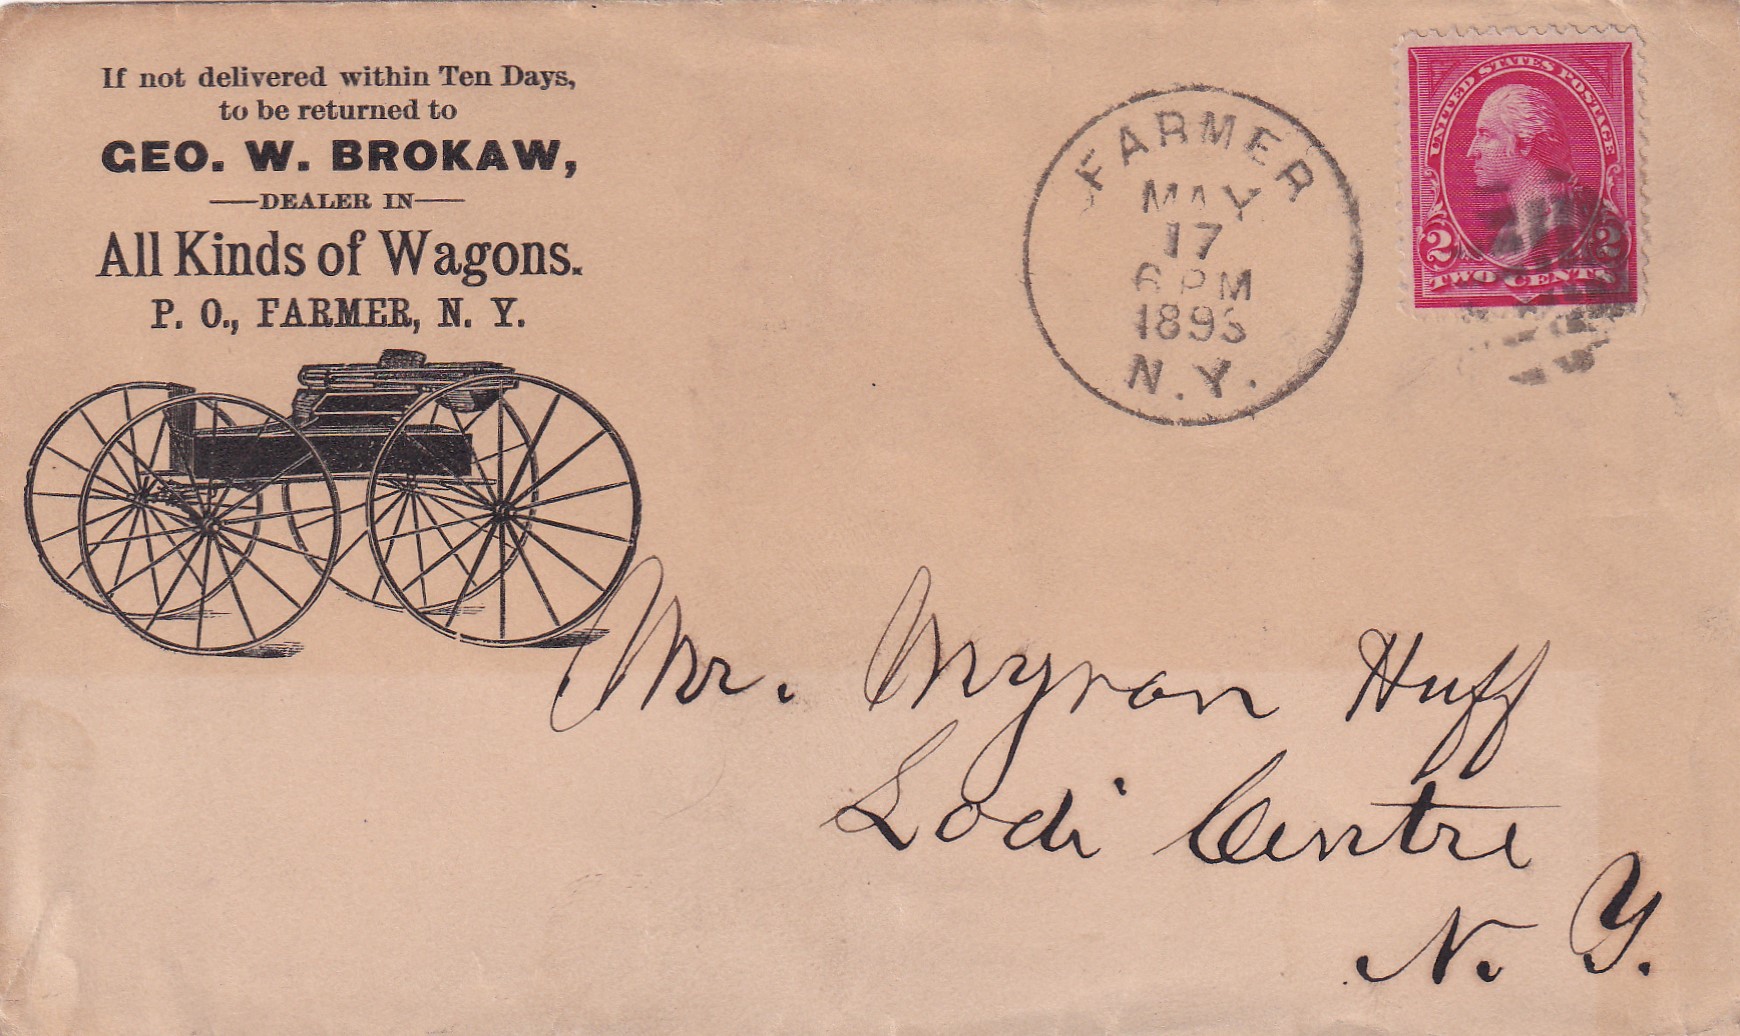 If not delivered within Ten Days,
to be returned to
GEO. W. BROKAW,
DEALER IN
All Kinds of Wagons.
P. O., FARMER, N. Y.
FARMER
MAY
17
6 PM
N.Y.
UNITED STATES POSTAGE
2 2
TWO CENTS
Mr. Myron Huff
Lodi Centre
N. Y.